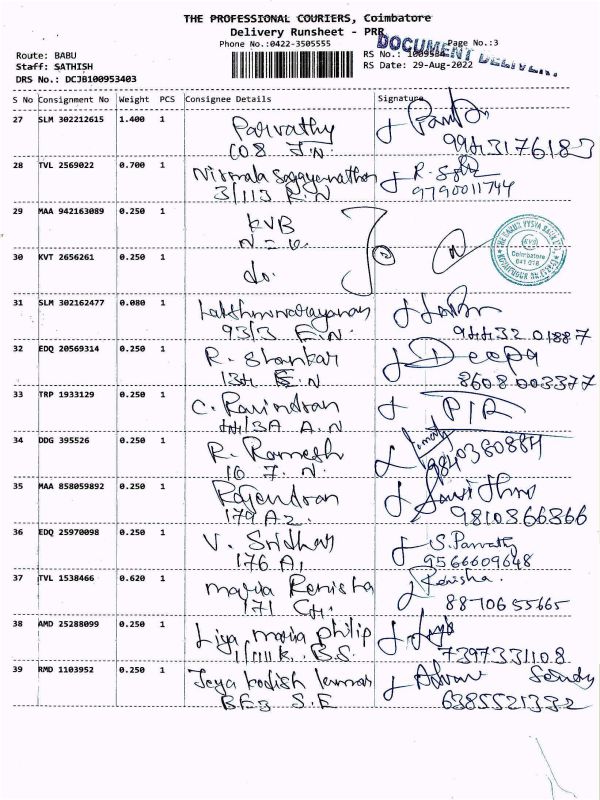 THE PROFESSIONAL COURIERS, Coimbatore
Delivery Runsheet - PRR
Phone No.:0422-3505555
Page No.:3
DOCUMENT DELIVERY
Route: BABU
Staff: SATHISH
DRS No.: DCJB100953403
RS No.: 1009534
RS Date: 29-Aug-2022
S No Consignment No Weight PCS Consignee Details Signature
27 SLM 302212615 1.400 1 Parvathy
108 J.N 9943176183
28 TVL 2569022 0.700 1 Nirmala R.
3/113 R.N 9790011744
29 MAA 942163089 0.250 1 KVB
N=6
30 KVT 2656261 0.250 1 do.
THE KARUR VYSYA BANK
KVB
Coimbatore
641 018
31 SLM 302162477 0.080 1 Lakshminarayanan
93/3 E.N 94432 01887
32 EDQ 20569314 0.250 1 R. Shankar Deepa
134 E.N 8608003377
33 TRP 1933129 0.250 1 C. Ravindran
44/3A A.N
34 DDG 395526 0.250 1 R. Ramesh 9840380884
10 7. N.
35 MAA 858059892 0.250 1 Rajendran
179 A2. 9810366366
36 EDQ 25970098 0.250 1 V. Sridhar S. Parvathy
176 A1 9566609648
37 TVL 1538466 0.620 1 Maria Renisha Renisha.
171 8870655665
38 AMD 25288099 0.250 1 Liya maria philip
B.S. 7397331108
39 RMD 1103952 0.250 1 Jeya
BE3 S.E 6385521332